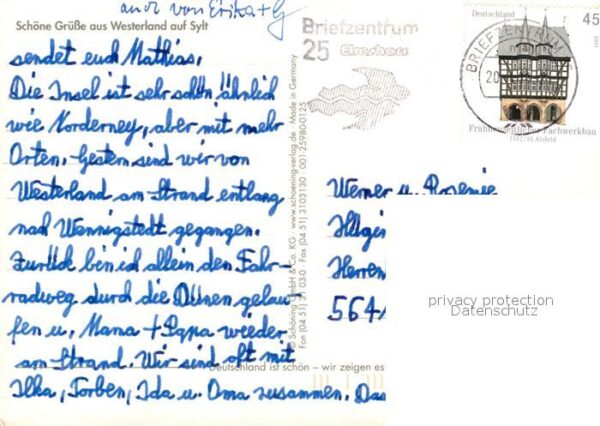 auch von Erika + G
Schöne Grüße aus Westerland auf Sylt
sendet euch Mathias.
Die Insel ist sehr schön, ähnlich
wie Norderney, aber mit mehr
Orten. Gestern sind wir von
Westerland am Strand entlang
nach Wennigstedt gegangen.
Zurück bin ich allein den Fahr-
radweg durch die Dünen gelau-
fen u. Mama + Papa wieder
am Strand. Wir sind oft mit
Ilka, Torben, Ida u. Oma zusammen. Das
© Schöning GmbH & Co. KG · www.schoening-verlag.de · Made in Germany
Fon (04 51) 31 03-0 · Fax (04 51) 3103130 · 001-25980-0125
Deutschland ist schön – wir zeigen es
Briefzentrum
25 Elmshorn
Deutschland 45
BRIEFZENTRUM
Frühneuzeitlicher Fachwerkbau
1512/16 Alsfeld
Werner u. Rosemie
Hilgin
Herren
564
privacy protection
Datenschutz